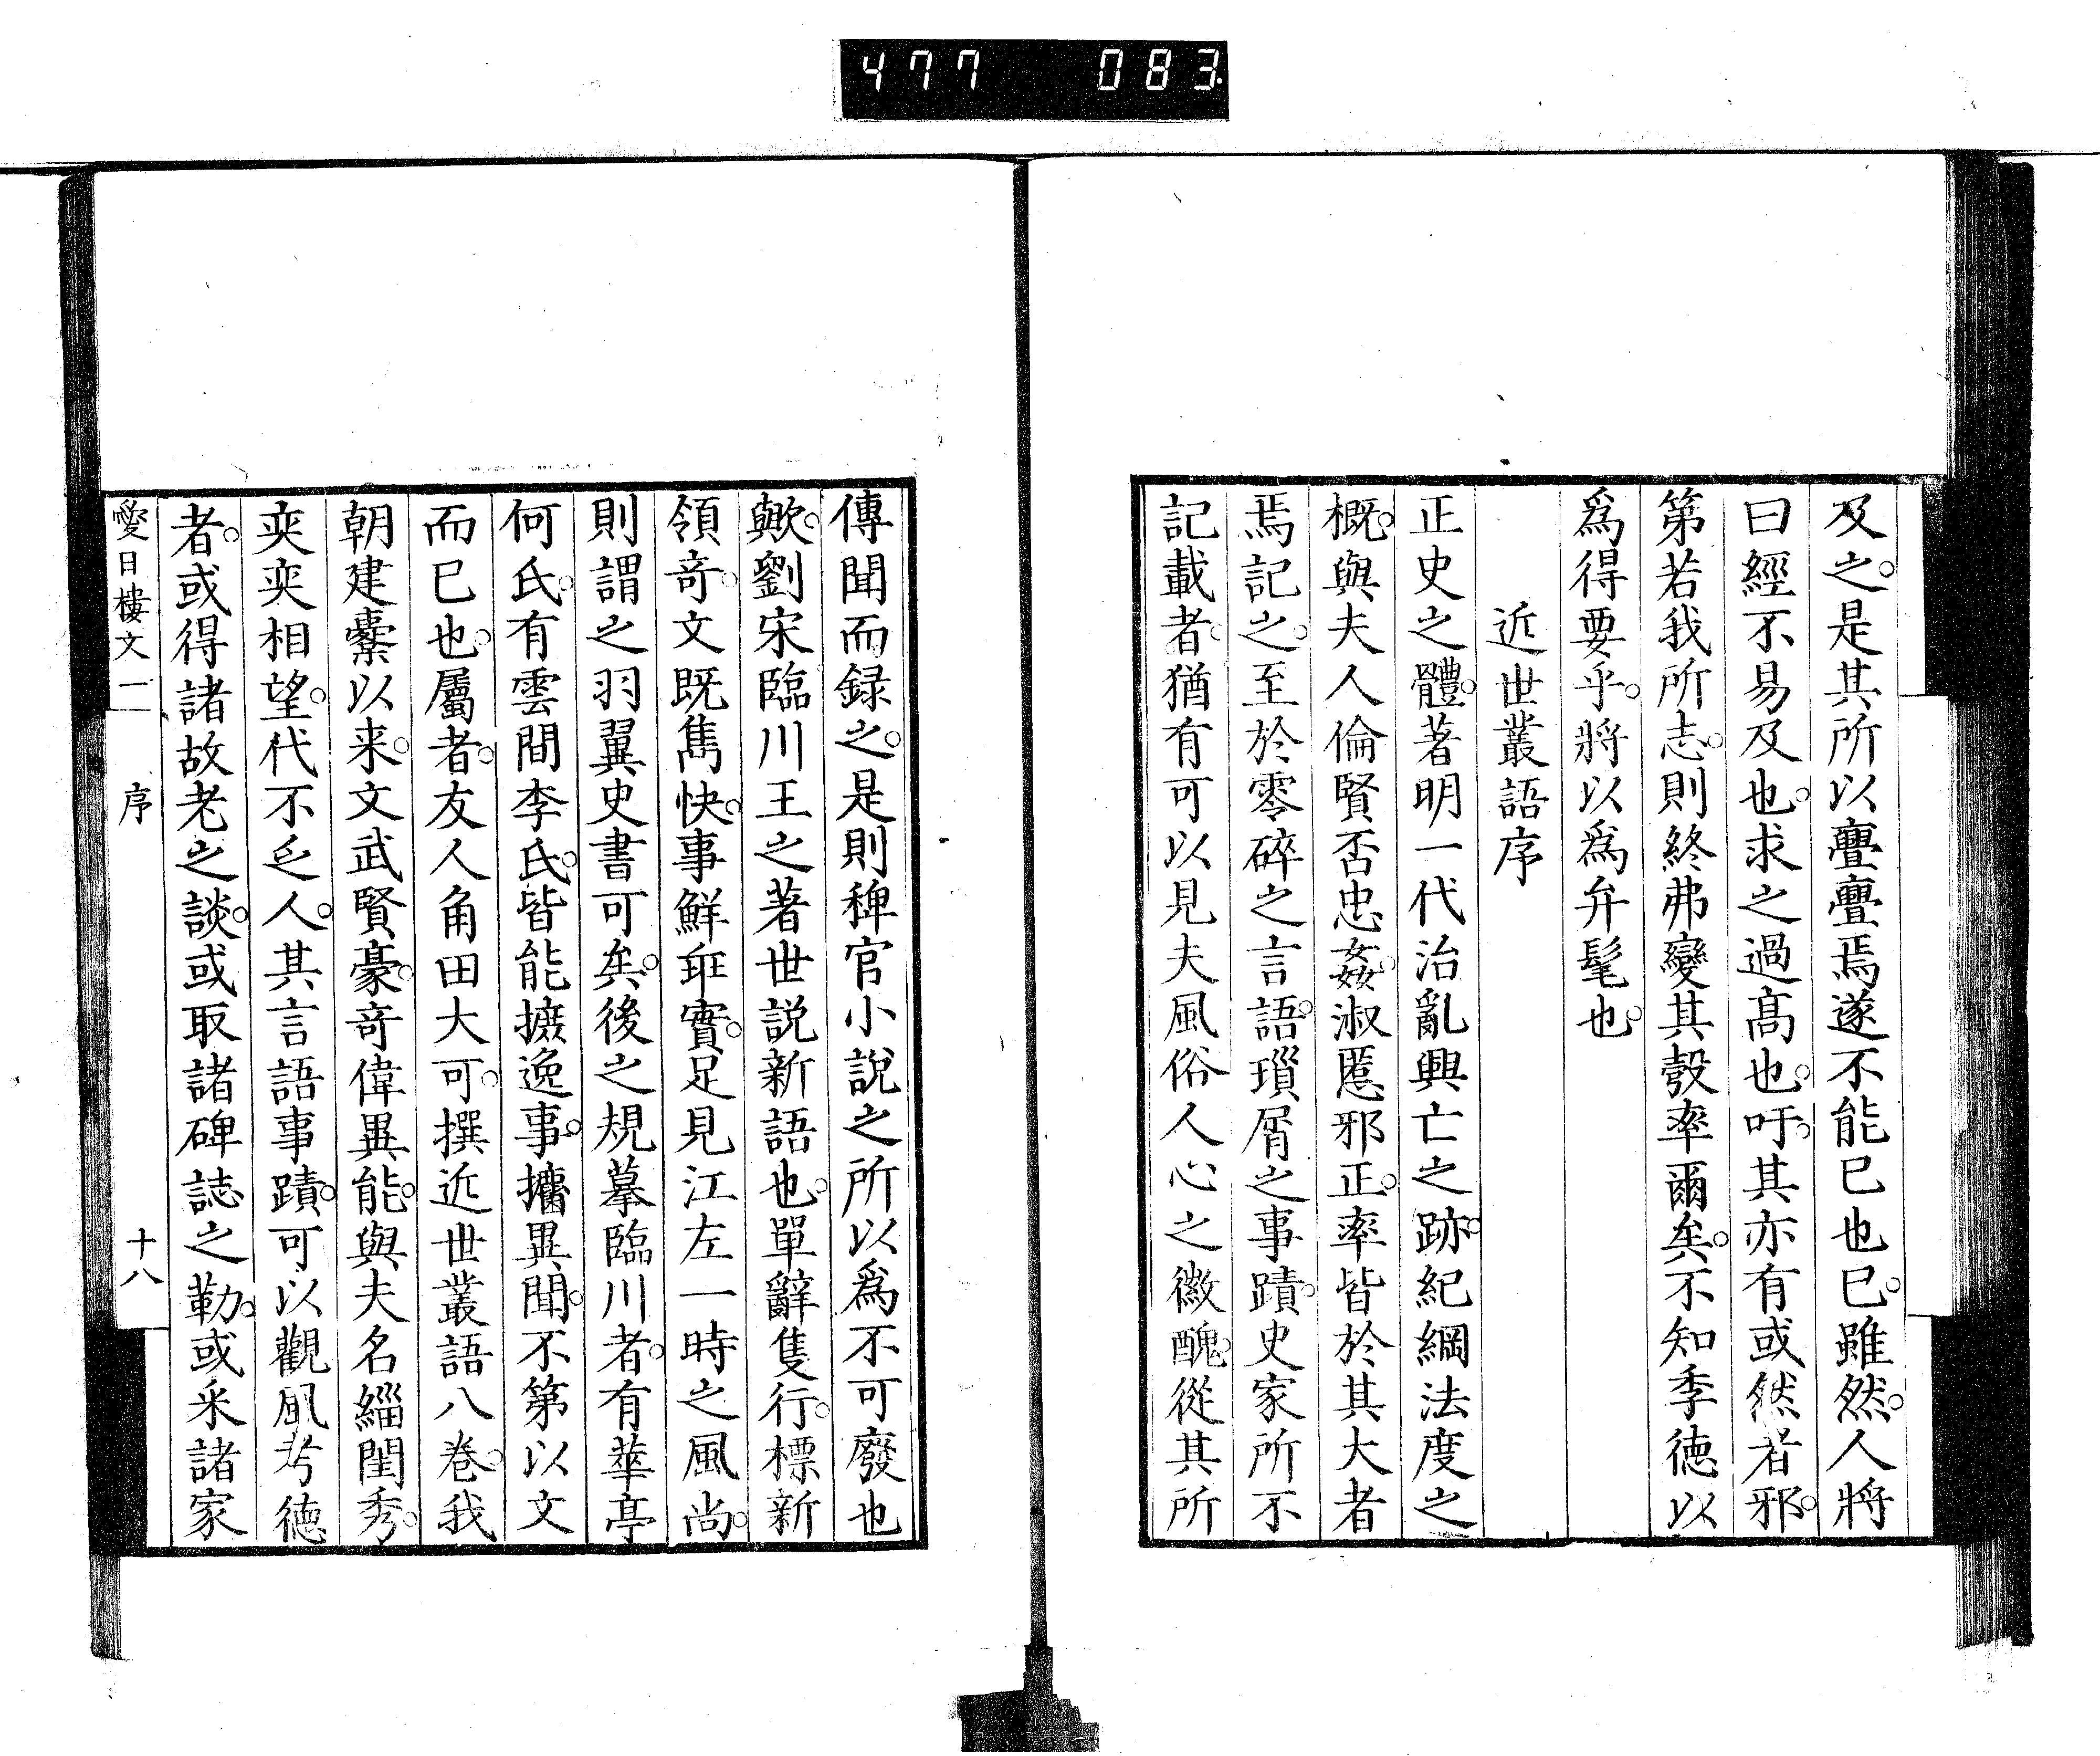 477 083.
及之。是其所以亹亹焉遂不能已也已。雖然。人將
曰經不易及也。求之過高也。吁。其亦有或然者邪。
第若我所志。則終弗變其彀率爾矣。不知季德以
爲得要乎。將以爲弁髦也。
近世叢語序
正史之體。著明一代治亂興亡之跡。紀綱法度之
概。與夫人倫賢否忠姦。淑慝邪正。率皆於其大者
焉記之。至於零碎之言語。瑣屑之事蹟。史家所不
記載者。猶有可以見夫風俗人心之微醜。從其所
傳聞而録之。是則稗官小說之所以爲不可廢也
歟。劉宋臨川王之著世説新語也。單辭隻行。標新
領竒。文既雋快。事鮮誣實。足見江左一時之風尚。
則謂之羽翼史書可矣。後之規摹臨川者。有華亭
何氏。有雲間李氏。皆能摭逸事。攟異聞。不第以文
而已也。屬者。友人角田大可。撰近世叢語八卷。我
朝建櫜以来。文武賢豪。竒偉異能。與夫名緇閨秀。
奕奕相望。代不乏人。其言語事蹟。可以觀風考德
者。或得諸故老之談。或取諸碑誌之勒。或采諸家
愛日樓文二 序 十八